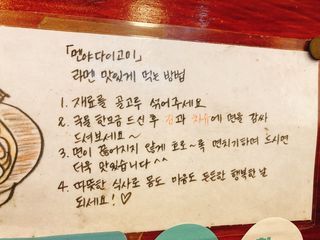 「멘야다이고미」
라멘 맛있게 먹는 방법
1. 재료를 골고루 섞어주세요
2. 국물 한모금 드신 후 김과 차슈에 면을 감싸
드셔보세요~
3. 면이 끊어지지 않게 호로~록 면치기하며 드시면
더욱 맛있습니다^^
4. 따뜻한 식사로 몸도 마음도 든든한 행복한 날
되세요!♡